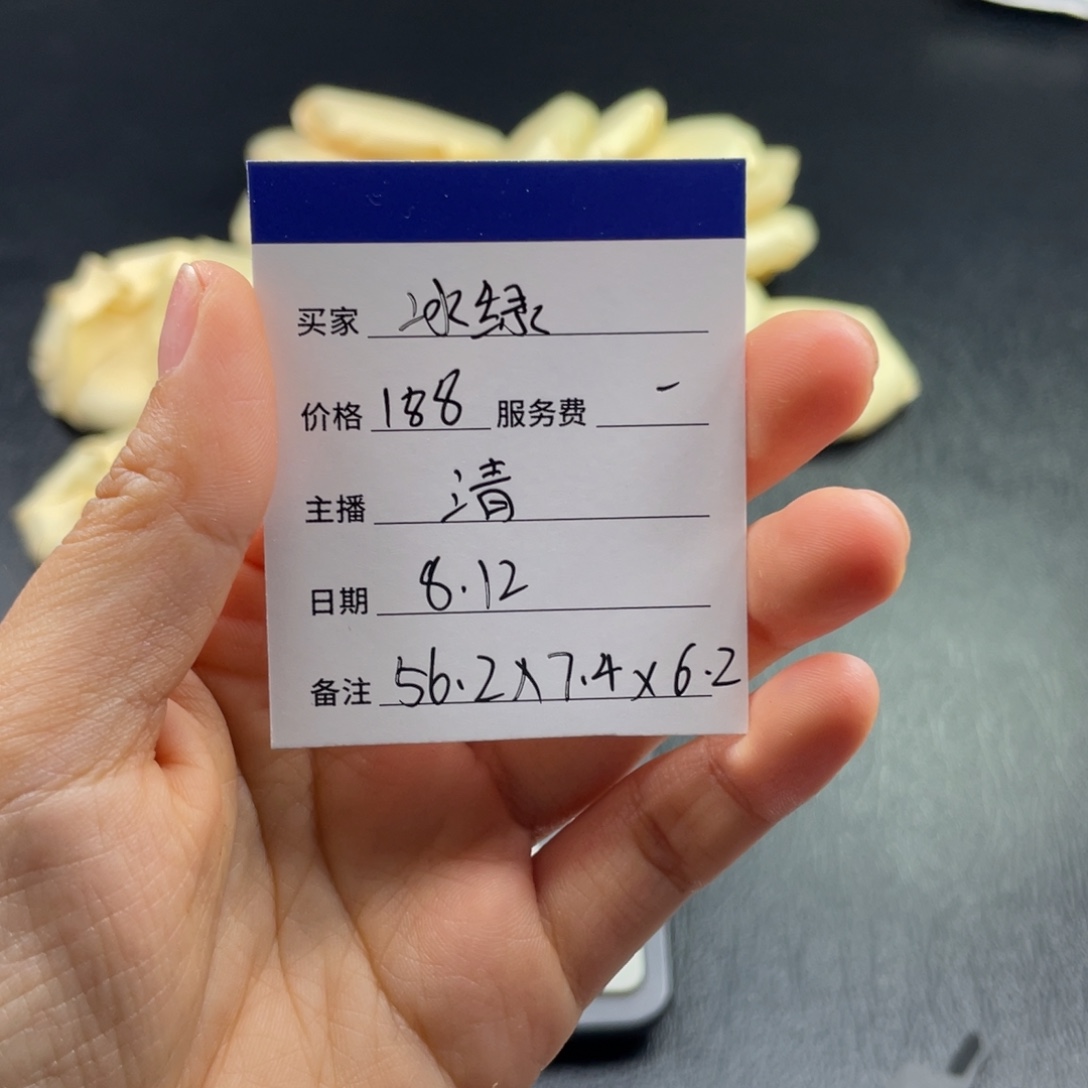 买家 冰绿
价格 188 服务费 -
主播 清
日期 8.12
备注 56.2x7.4x6.2